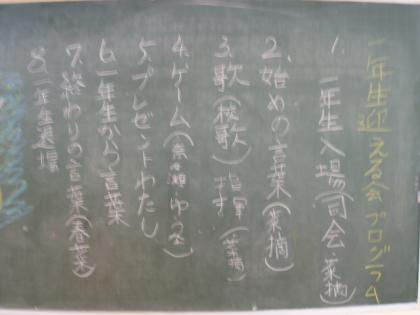 一年生迎える会プログラム
1. 一年生入場(司会、菜摘)
2. 始めの言葉(菜摘)
3. 歌(校歌)指揮(菜摘)
4. ゲーム(
5. プレゼントわたし
6. 一年生から言葉
7. 終わりの言葉(春菜)
8. 一年生退場